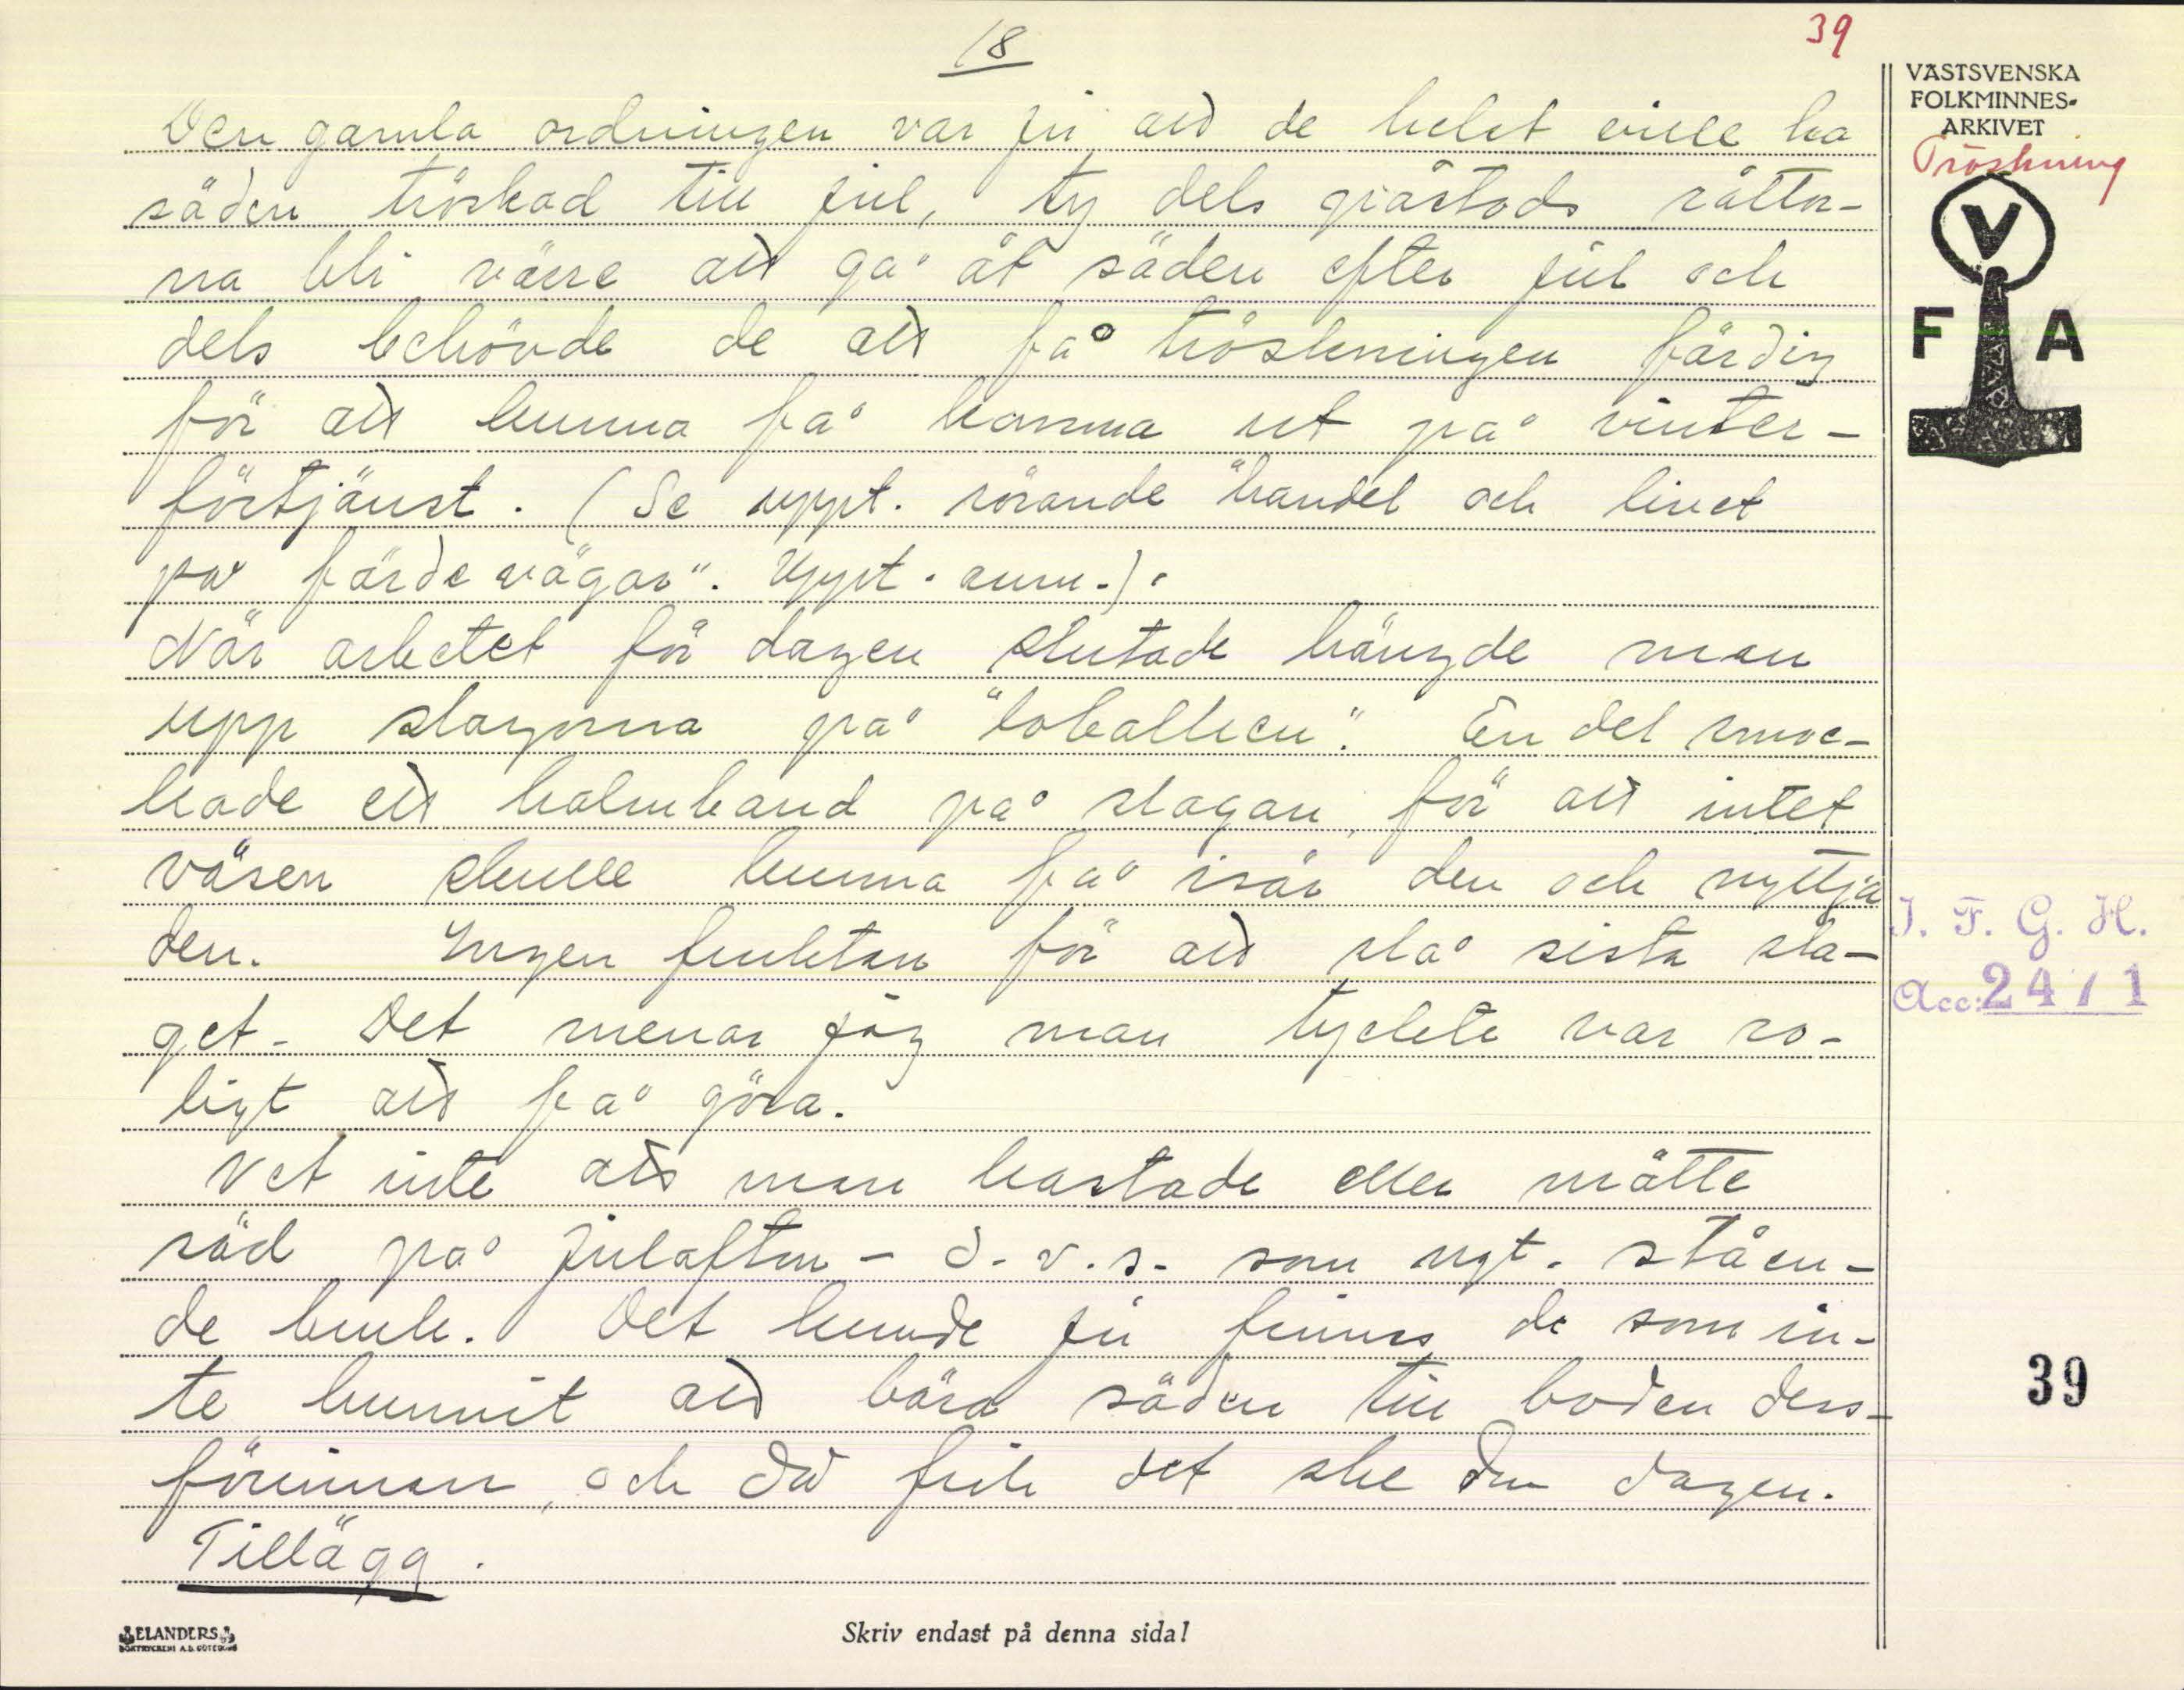 18
39
VÄSTSVENSKA
FOLKMINNES-
ARKIVET
Tröskning
V
F A
Den gamla ordningen var ju att de helst ville ha
säden tröskad till jul, ty dels påstods råttor-
na bli värre att gå åt säden efter jul och
dels behövde de att få tröskningen färdig
för att kunna få komma ut på vinter-
förtjänst. (Se uppt. rörande "handel och livet
på färdevägar". Uppt. anm.).
När arbetet för dagen slutade hängde man
upp slagorna på "loballken". En del smoc-
kade ett halmband på slagan, för att intet
väsen skulle kunna få isär den och nyttja
den. Ingen fruktan för att slå sista sla-
get. Det menar jag man tyckte var ro-
ligt att få göra.
Vet inte att man kastade eller mätte
säd på julafton - d.v.s. som ngt. ståen-
de bruk. Det kunde ju finnas de som in-
te hunnit att bära säden till boden dess-
förinnan, och då fick det ske den dagen.
Tillägg.
I. F. G. H.
Acc: 2471
39
ELANDERS
BOKTRYCKERI A.B. GÖTEBORG
Skriv endast på denna sida!